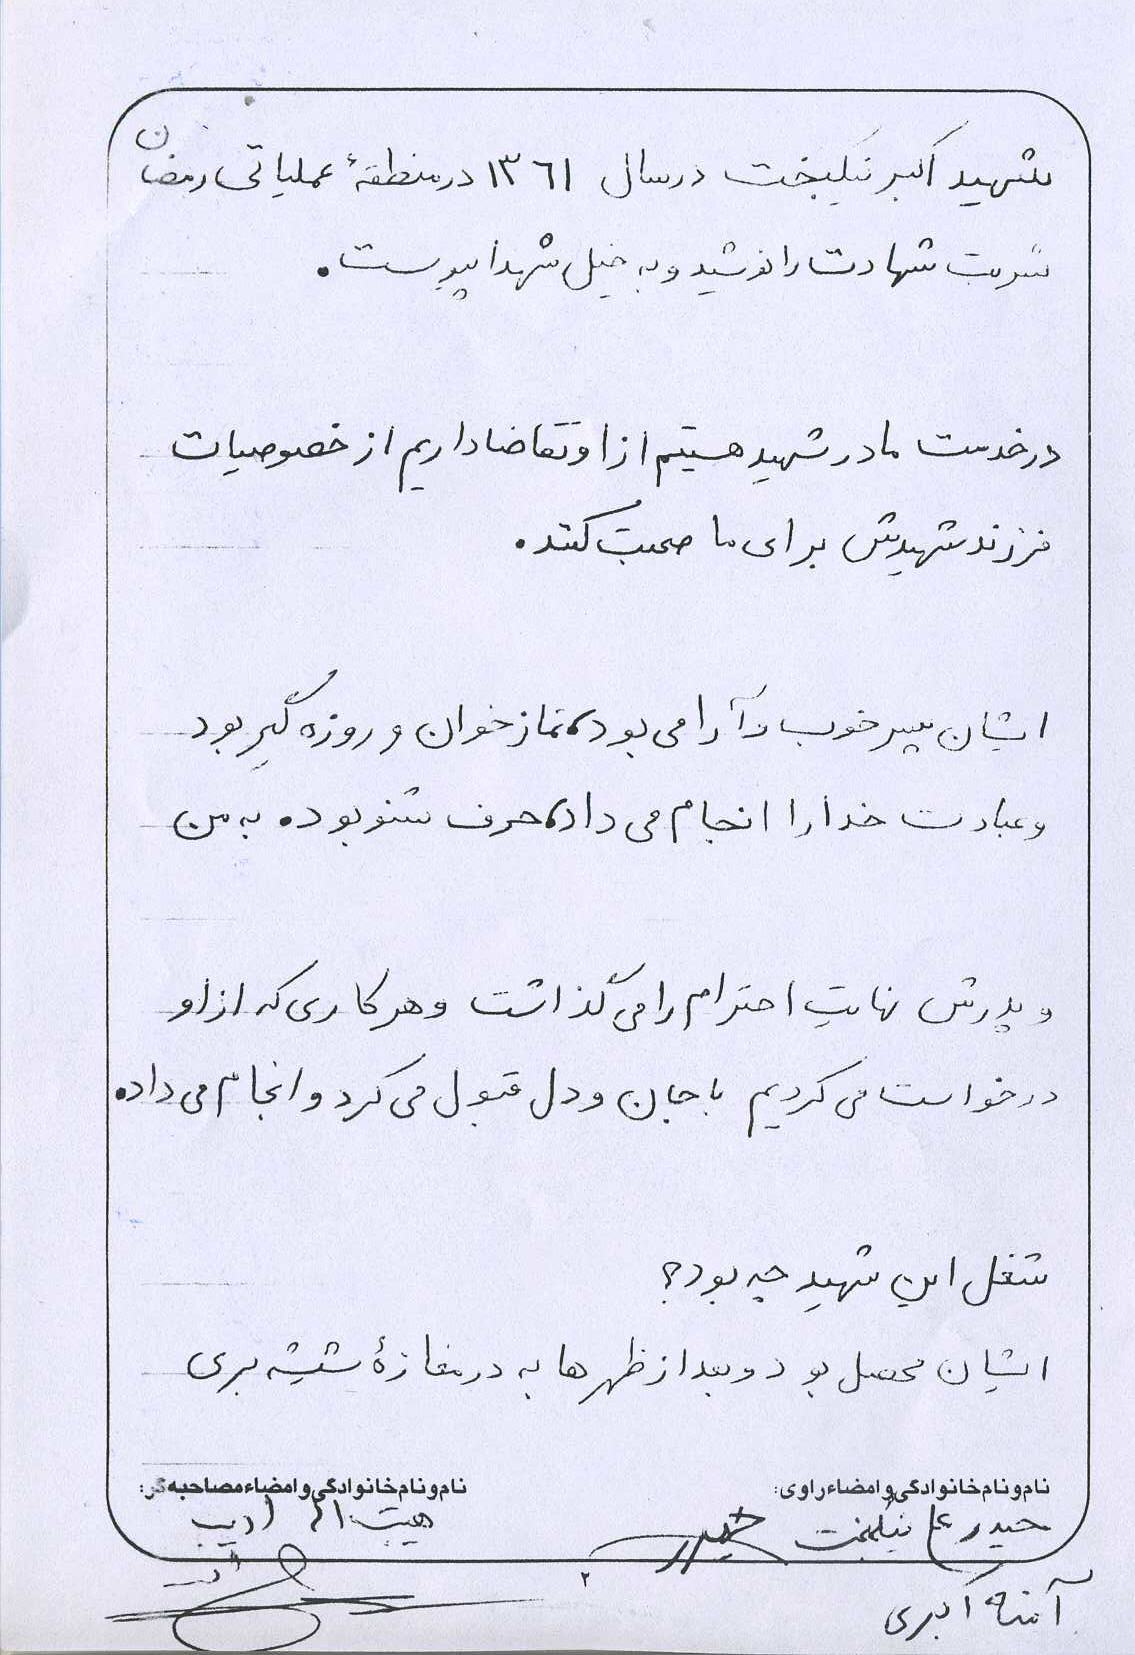 شهید اکبر نیکبخت در سال ۱۳۶۱ در منطقهٔ عملیاتی رمضان
شربت شهادت را نوشید و به خیل شهدا پیوست.
در خدمت مادر شهید هستیم از او تقاضا داریم از خصوصیات
فرزند شهیدش برای ما صحبت کنند.
ایشان پسر خوب و آرامی بود، نماز خوان و روزه گیر بود
و عبادت خدا را انجام می داد، حرف شنو بود. به من
و پدرش نهایت احترام را می گذاشت و هر کاری که از او
درخواست می کردیم با جان و دل قبول می کرد و انجام می داد.
شغل این شهید چه بود؟
ایشان محصل بود و بعد از ظهرها به در مغازهٔ شیشه بری
نام و نام خانوادگی و امضاء راوی:
نام و نام خانوادگی و امضاء مصاحبه گر:
حیدر علی نیکبخت حیدر
هیبت اله ادیب
۲
آمنه اکبری